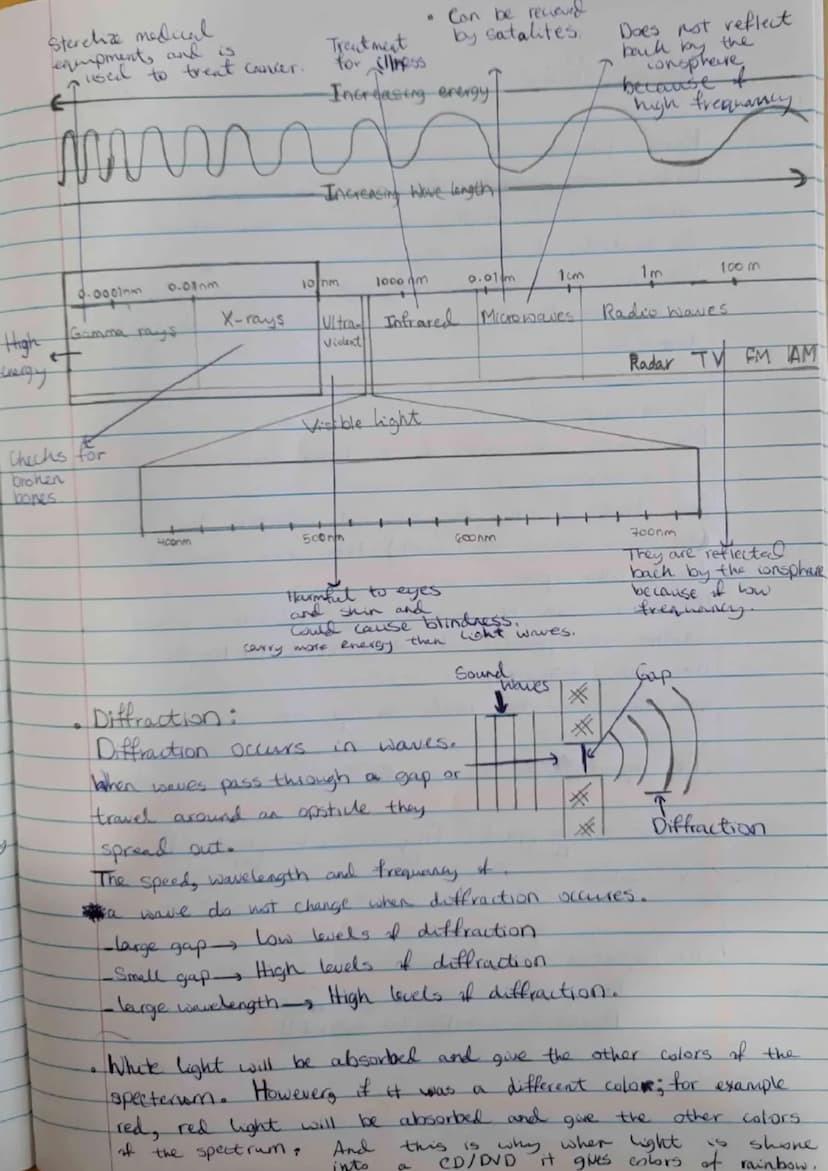 Sterelize medical
equipments, and is
used to treat cancer.
Treatment
for illness
• Can be recieved
by satalites.
Does not reflect
back by the
ionsphere,
because of
high frequency
Increasing energy
Increasing Wave length
0.0001nm
0.01nm
10nm
1000nm
0.01m
1cm
1m
100m
Gamma rays
X-rays
Ultra-
violent
Infrared
Microwaves
Radio waves
High
energy
Radar TV FM AM
Visible light
Checks for
broken
bones
400nm
500nm
600nm
700nm
Harmful to eyes
and skin and
could cause blindness.
carry more energy then light waves.
They are reflected
back by the ionsphere
because of low
frequency.
Sound
waves
Gap
Diffraction
• Diffraction:
Diffraction occurs in waves.
When waves pass through a gap or
travel around an opsticle they
spread out.
The speed, wavelength and frequency of
a wave do not change when diffraction occures.
- large gap → Low levels of diffraction
- Small gap → High levels of diffraction
- large wavelength → High levels of diffraction.
• White light will be absorbed and give the other colors of the
specterum. However, if it was a different color; for example
red, red light will be absorbed and give the other colors
of the spectrum. And this is why when light is shone
into a CD/DVD it gives colors of rainbow.